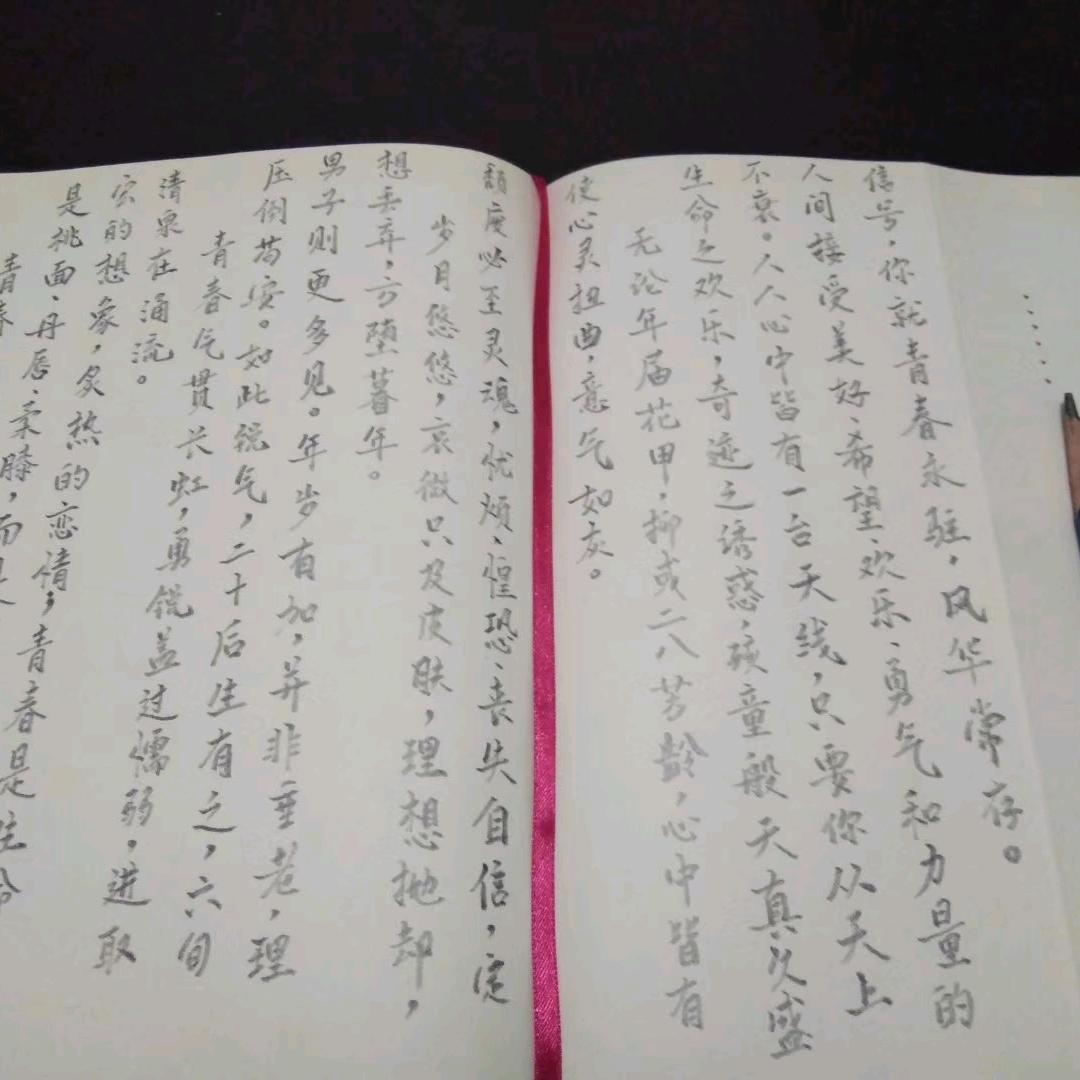 青春
是桃面、丹唇、柔膝，而是
宏的想象，炙热的恋情，青春是生命
清泉在涌流。
青春气贯长虹，勇锐盖过懦弱。进取
压倒苟安。如此锐气，二十后生有之，六旬
男子则更多见。年岁有加，并非垂老，理
想丢弃，方堕暮年。
岁月悠悠，衰微只及皮肤，理想抛却，
颓废必至灵魂，忧烦、惶恐、丧失自信，定
使心灵扭曲，意气如灰。
无论年届花甲，抑或二八芳龄，心中皆有
生命之欢乐，奇迹之诱惑，孩童般天真久盛
不衰。人人心中皆有一台天线，只要你从天上
人间接受美好、希望、欢乐、勇气和力量的
信号，你就青春永驻，风华常存。
······